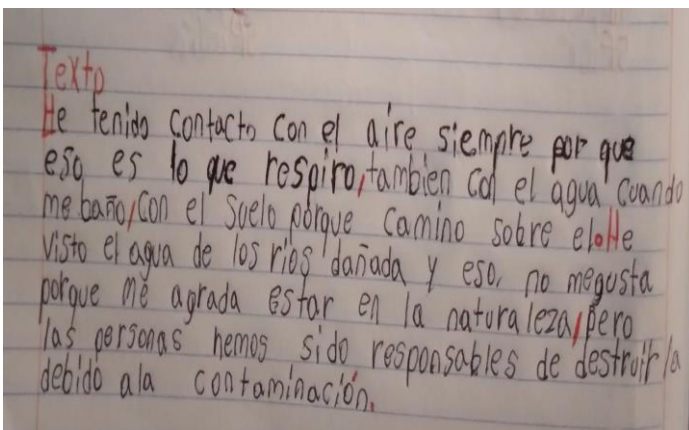 Texto
He tenido contacto con el aire siempre por que
eso es lo que respiro, tambien con el agua cuando
me baño, con el suelo porque camino sobre el. He
visto el agua de los ríos dañada y eso, no megusta
porque me agrada estar en la naturaleza, pero
las personas hemos sido responsables de destruirla
debido ala contaminación.